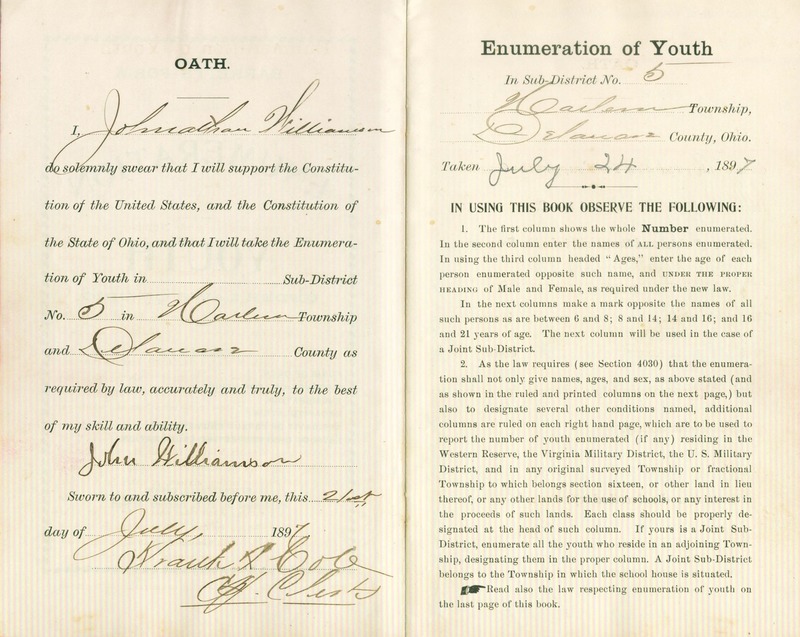 OATH.
I, Johnathan Williamson
do solemnly swear that I will support the Constitu-
tion of the United States, and the Constitution of
the State of Ohio, and that I will take the Enumera-
tion of Youth in Sub-District
No. 5 in Harlem Township
and Delaware County as
required by law, accurately and truly, to the best
of my skill and ability.
John Williamson
Sworn to and subscribed before me, this 21st
day of July, 1897
Frank L Cole
Enumeration of Youth
In Sub-District No. 5
Harlem Township,
Delaware County, Ohio.
Taken July 24, 1897
IN USING THIS BOOK OBSERVE THE FOLLOWING:
1. The first column shows the whole Number enumerated.
In the second column enter the names of ALL persons enumerated.
In using the third column headed "Ages," enter the age of each
person enumerated opposite such name, and UNDER THE PROPER
HEADING of Male and Female, as required under the new law.
In the next columns make a mark opposite the names of all
such persons as are between 6 and 8; 8 and 14; 14 and 16; and 16
and 21 years of age. The next column will be used in the case of
a Joint Sub-District.
2. As the law requires (see Section 4030) that the enumera-
tion shall not only give names, ages, and sex, as above stated (and
as shown in the ruled and printed columns on the next page,) but
also to designate several other conditions named, additional
columns are ruled on each right hand page, which are to be used to
report the number of youth enumerated (if any) residing in the
Western Reserve, the Virginia Military District, the U. S. Military
District, and in any original surveyed Township or fractional
Township to which belongs section sixteen, or other land in lieu
thereof, or any other lands for the use of schools, or any interest in
the proceeds of such lands. Each class should be properly de-
signated at the head of such column. If yours is a Joint Sub-
District, enumerate all the youth who reside in an adjoining Town-
ship, designating them in the proper column. A Joint Sub-District
belongs to the Township in which the school house is situated.
Read also the law respecting enumeration of youth on
the last page of this book.